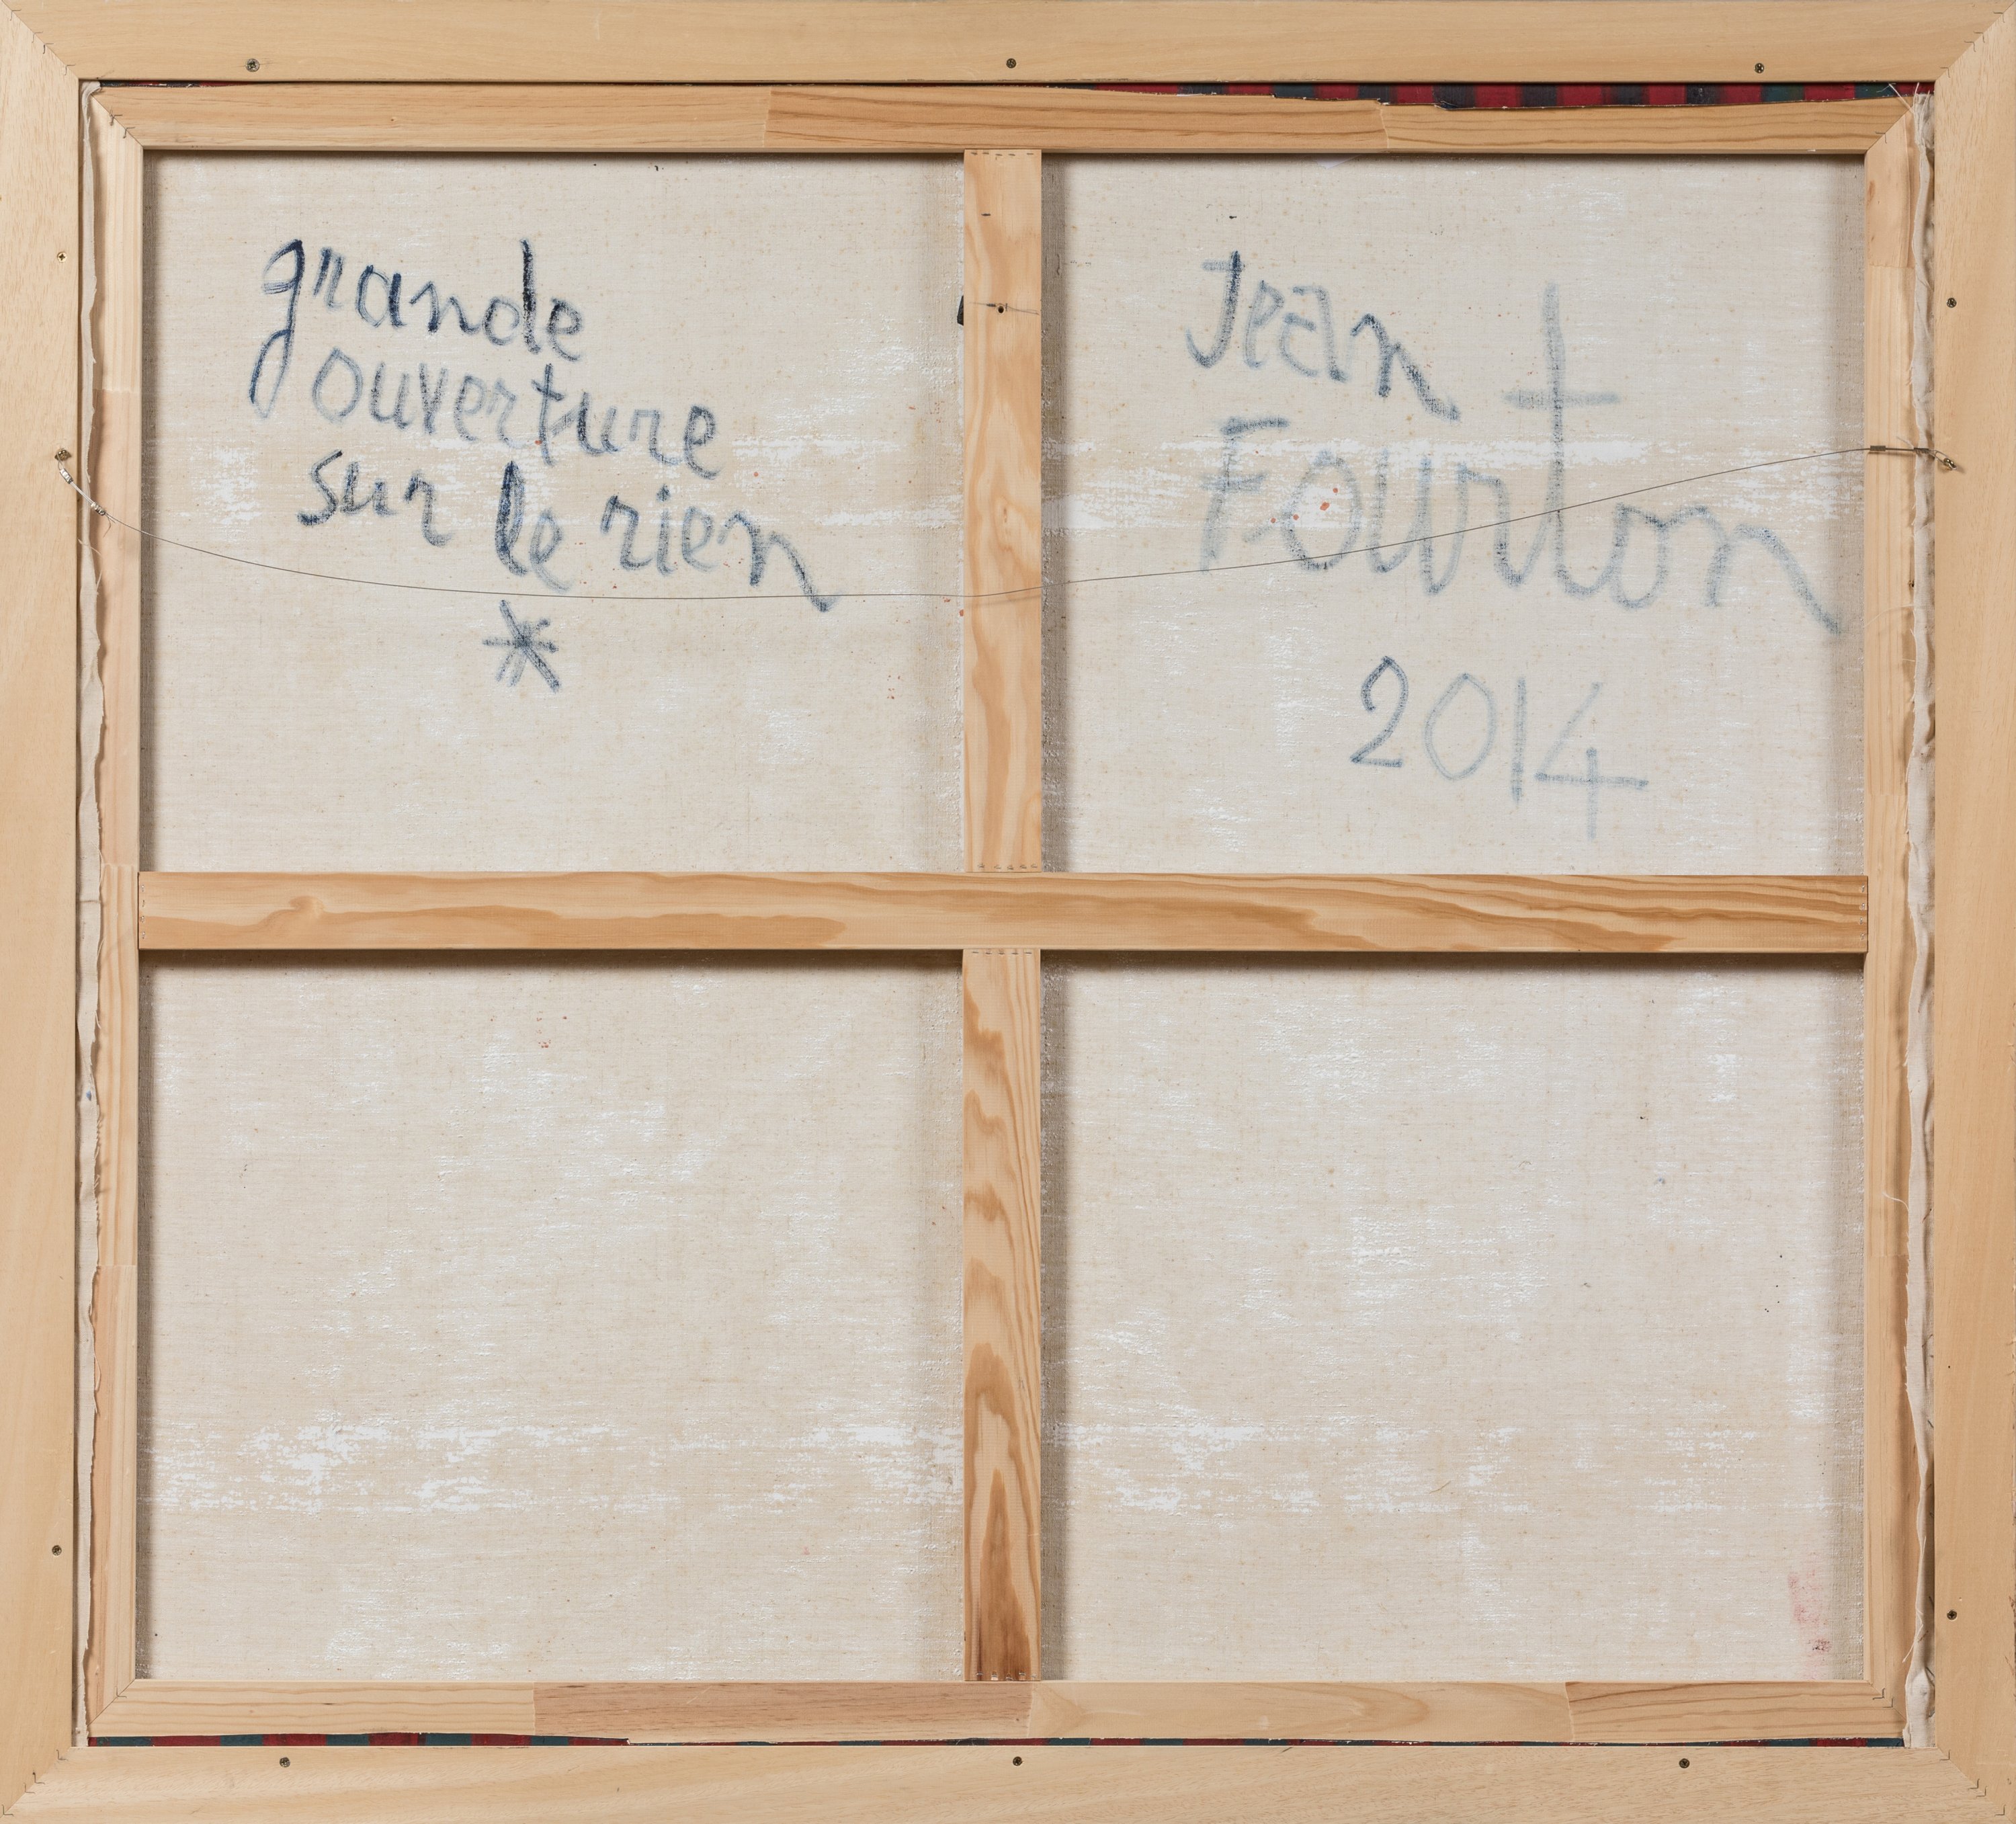 grande
ouverture
sur le rien
*
Jean
Fourton
2014